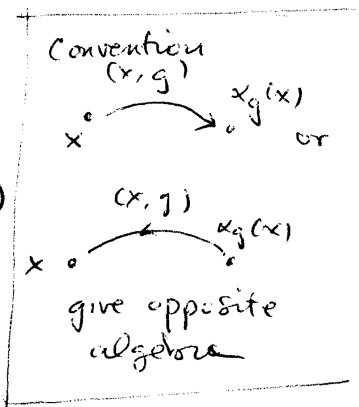 Convention
(x, g)
x α_g(x) or
(x, g)
x α_g(x)
give opposite
algebra